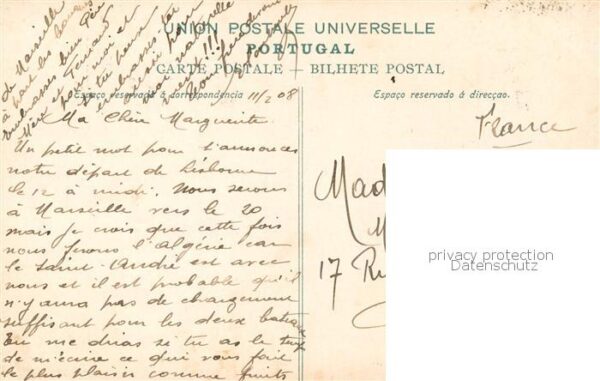 UNION POSTALE UNIVERSELLE
PORTUGAL
CARTE POSTALE — BILHETE POSTAL
Espaço reservado á correspondencia
Espaço reservado á direcçao.
11/2 08
Ma Chère Marguerite.
Un petit mot pour t'annoncer
notre départ de Lisbonne
le 12 à midi. Nous serons
à Marseille vers le 20
mais je crois que cette fois
nous ferons l'Algérie car
le Saint-André est avec
nous et il est probable qu'il
n'y aura pas de chargement
suffisant pour les deux bateaux
Tu me diras si tu as le
de m'écrire ce qui vous fait
le plus plaisir comme fruits
de Marseille
à part les
embrasses bien Père
Mère et
pour moi et
France
Mad
M
17 Ru
privacy protection
Datenschutz